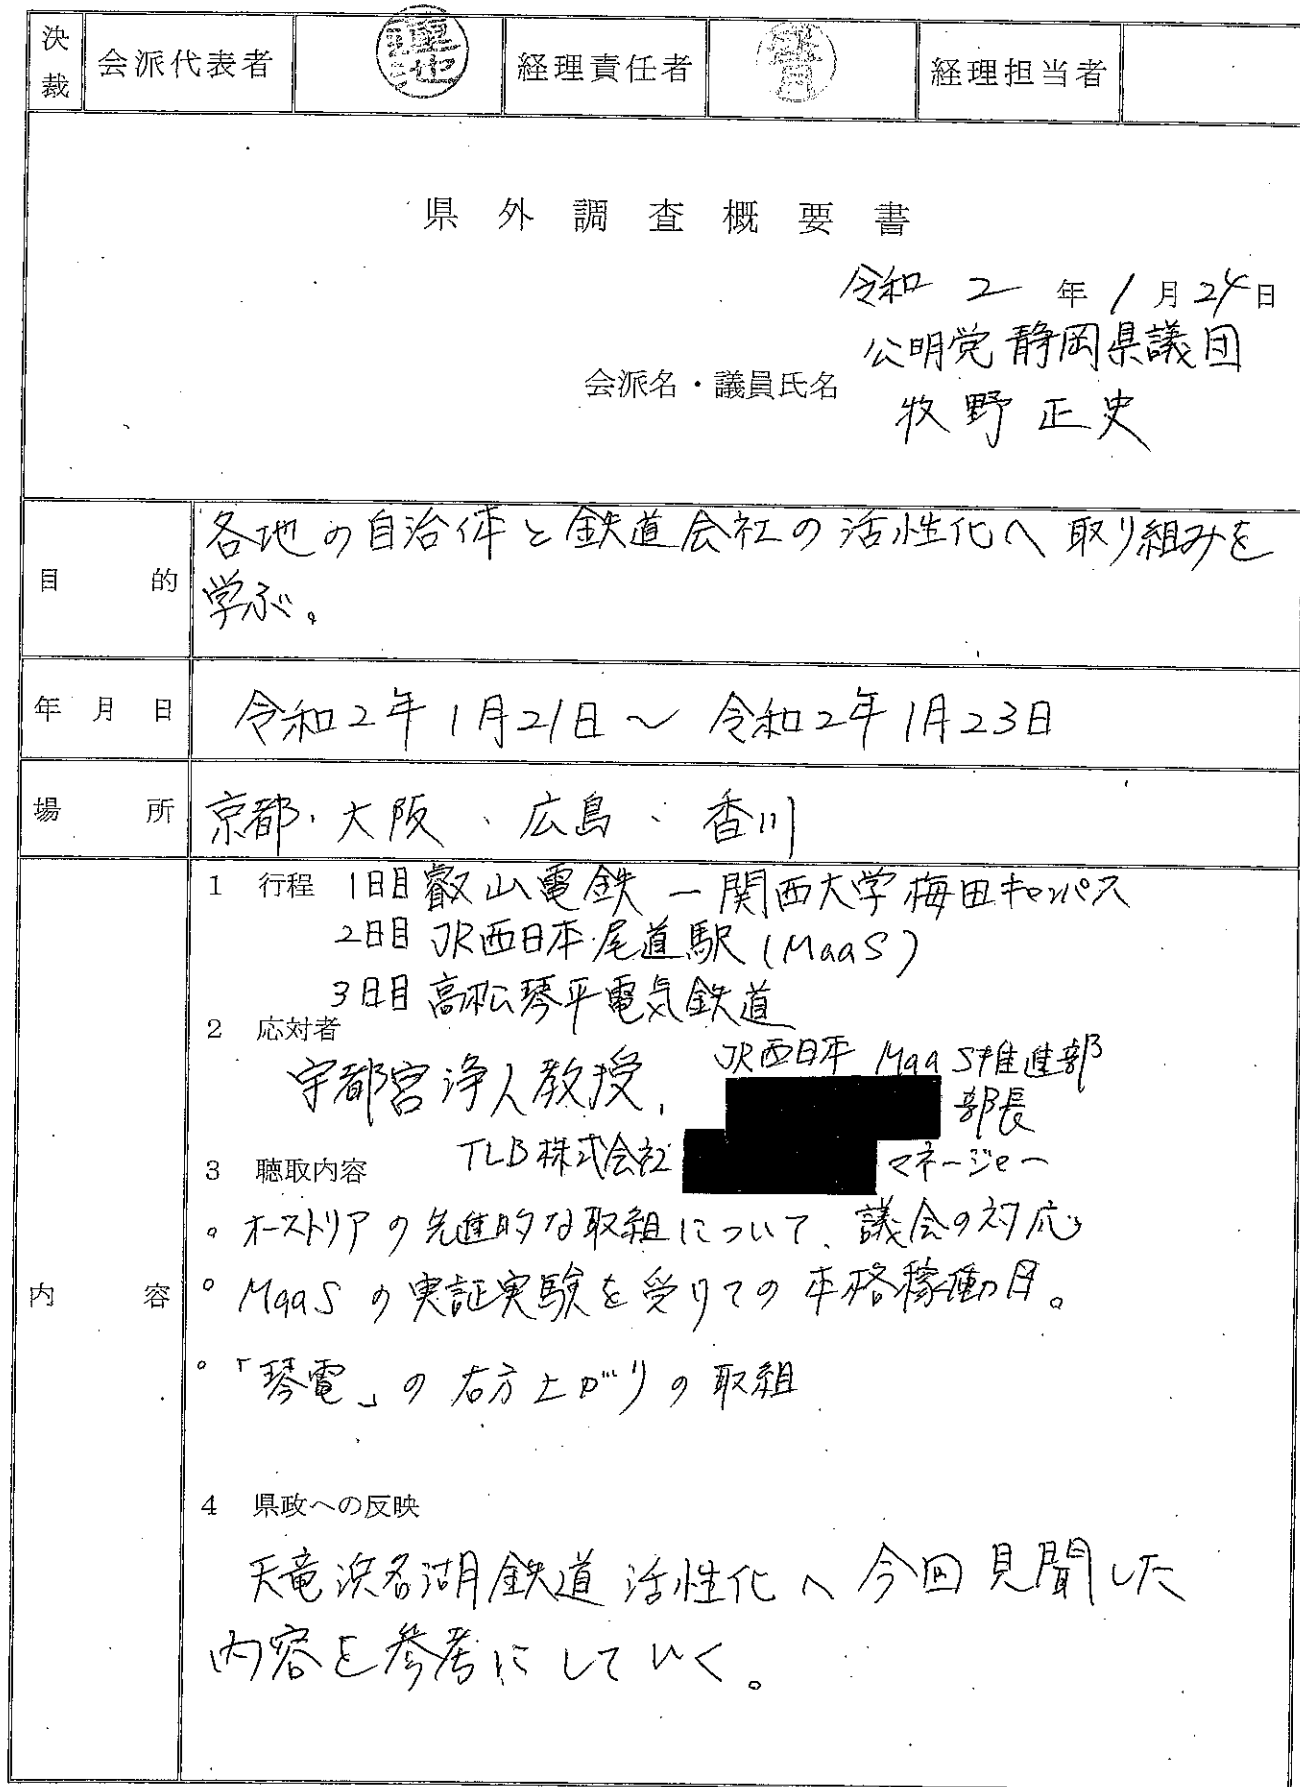 決裁 会派代表者 経理責任者 経理担当者
県外調査概要書
令和 2 年 1 月 24 日
公明党静岡県議団
会派名・議員氏名
牧野正史
目的 各地の自治体と鉄道会社の活性化へ取り組みを
学ぶ。
年月日 令和2年1月21日～令和2年1月23日
場所 京都、大阪、広島、香川
内容
1 行程 1日目 叡山電鉄ー関西大学梅田キャンパス
2日目 JR西日本・尾道駅(MaaS)
3日目 高松琴平電気鉄道
2 応対者
宇都宮浄人教授、 JR西日本 MaaS推進部
部長
TLB株式会社 マネージャー
3 聴取内容
。オーストリアの先進的な取組について、議会の対応
。MaaSの実証実験を受けての本格稼働
。「琴電」の右方上がりの取組
4 県政への反映
天竜浜名湖鉄道活性化へ今回見聞した
内容を参考にしていく。